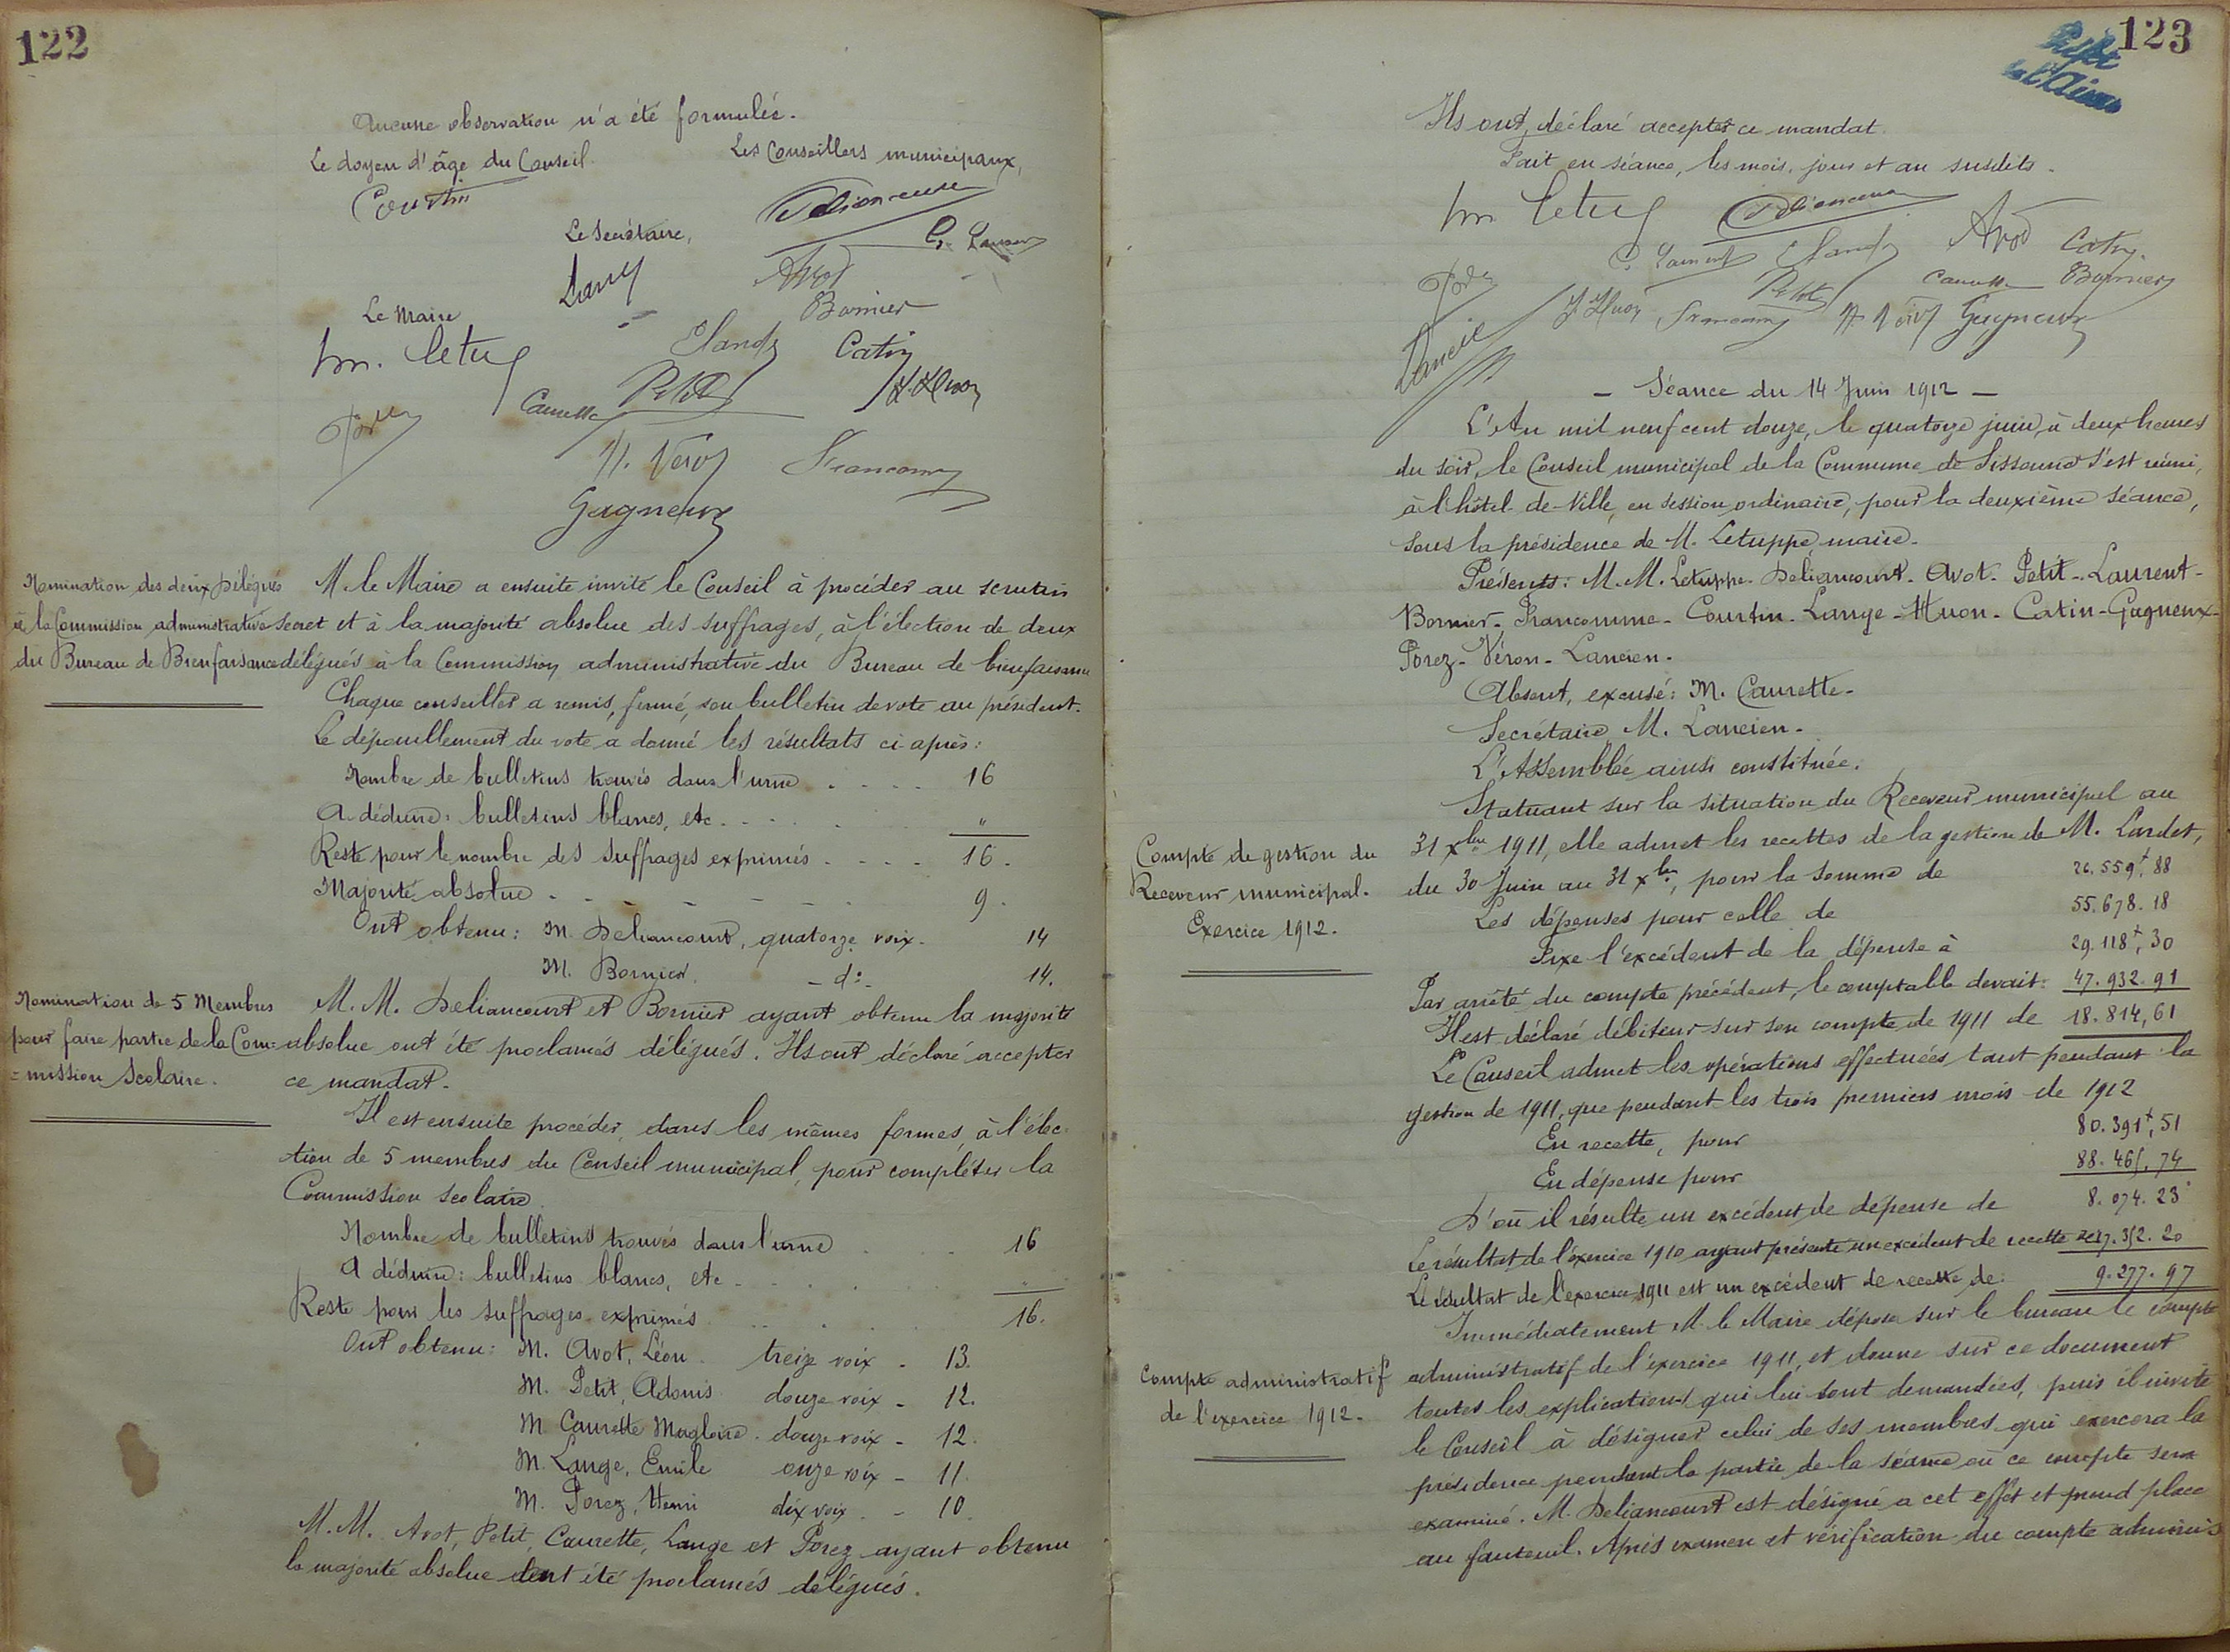 122
Aucune observation n'a été formulée.
Le doyen d'âge du Conseil
Les Conseillers municipaux,
Courtin
Deliancourt
Le Secrétaire,
G. Laurent
Avot
Le Maire
Bornier
m. Letup
Catin
Petit
J. Huon
Caurette
H. Véron
Francomme
Gugneux
Nomination des deux Délégués
à la Commission administrative
du Bureau de Bienfaisance
M. le Maire a ensuite invité le Conseil à procéder au scrutin
secret et à la majorité absolue des suffrages, à l'élection de deux
délégués à la Commission administrative du Bureau de bienfaisance
Chaque conseiller a remis, fermé, son bulletin de vote au président.
Le dépouillement du vote a donné les résultats ci-après:
Nombre de bulletins trouvés dans l'urne . . . . 16
A déduire: bulletins blancs, etc. . . . . "
Reste pour le nombre des suffrages exprimés . . . . 16.
Majorité absolue . . . . . . 9.
Ont obtenu: M. Deliancourt, quatorze voix. 14
M. Bornier. -d:- 14.
Nomination de 5 Membres
pour faire partie de la Com=
=mission Scolaire.
M.M. Deliancourt et Bornier ayant obtenu la majorité
absolue ont été proclamés délégués. Ils ont déclaré accepter
ce mandat.
Il est ensuite procéder, dans les mêmes formes, à l'élec-
tion de 5 membres du Conseil municipal, pour compléter la
Commission scolaire.
Nombre de bulletins trouvés dans l'urne . . . 16
A déduire: bulletins blancs, etc . . . . "
Reste pour les suffrages exprimés . . . . 16.
Ont obtenu: M. Avot, Léon. treize voix - 13.
M. Petit, Adonis. douze voix - 12.
M. Caurette Magloire. douze voix - 12.
M. Lange, Emile onze voix - 11.
M. Porez, Henri dix voix. - 10.
M.M. Avot, Petit, Caurette, Lange et Porez ayant obtenu
la majorité absolue ont été proclamés délégués.
123
Préfet
de l'Aisne
Ils ont déclaré accepter ce mandat.
Fait en séance, les mois, jour et an susdits.
m. Letup
Deliancourt
Avot
Catin
G. Laurent
Caurette
Bornier
Petit
J. Huon
Francomme
H. Véron
Gugneux
Lancien
- Séance du 14 Juin 1912 -
L'An mil neuf cent douze, le quatorze juin, à deux heures
du soir, le Conseil municipal de la Commune de Sissonne s'est réuni,
à l'hôtel-de-Ville, en session ordinaire, pour la deuxième séance,
sous la présidence de M. Letuppe maire.
Présents: M.M. Letuppe- Deliancourt- Avot- Petit- Laurent-
Bornier- Francomme- Courtin- Lange- Huon- Catin- Gugneux-
Porez- Véron- Lancien.
Absent, excusé: M. Caurette-
Secrétaire M. Lancien-
L'Assemblée ainsi constituée.
Statuant sur la situation du Receveur municipal au
Compte de gestion du
Receveur municipal.
Exercice 1912.
31 xbre 1911, elle admet les recettes de la gestion de M. Lardet,
du 30 Juin au 31 xbre, pour la somme de 26.559f,88
Les dépenses pour celle de 55.678.18
Fixe l'excédent de la dépense à 29.118f,30
Par arrêté du compte précédent, le comptable devait: 47.932.91
Il est déclaré débiteur sur son compte de 1911 de 18.814,61
Le Conseil admet les opérations effectuées tant pendant la
gestion de 1911, que pendant les trois premiers mois de 1912
En recette, pour 80.391f,51
En dépense pour 88.465,74
D'où il résulte un excédent de dépense de 8.074.23
Le résultat de l'exercice 1910 ayant présenté un excédent de recette de 17.352.20
Le résultat de l'exercice 1911 est un excédent de recette de: 9.277.97
Immédiatement M. le Maire dépose sur le bureau le compte
Compte administratif
de l'exercice 1912.
administratif de l'exercice 1911, et donne sur ce document
toutes les explications qui lui sont demandées, puis il invite
le Conseil à désigner celui de ses membres qui exercera la
présidence pendant la partie de la séance où ce compte sera
examiné. M. Deliancourt est désigné a cet effet et prend place
au fauteuil. Après examen et vérification du compte adminis